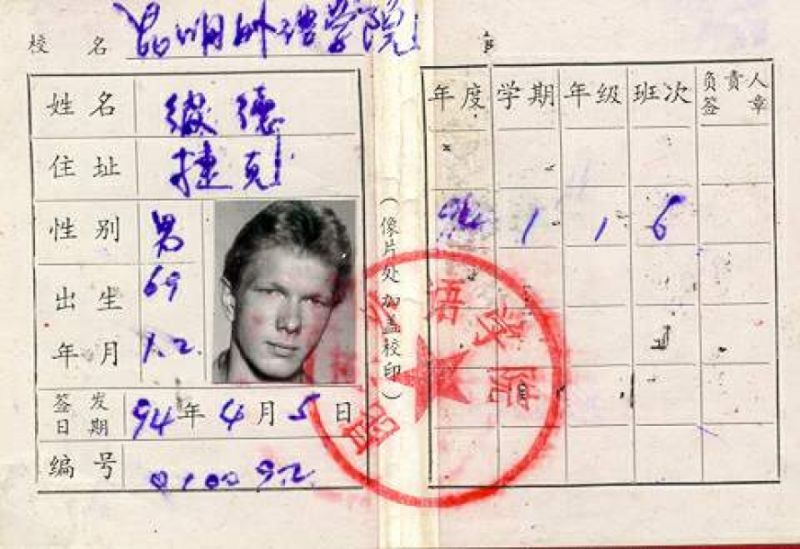 校 名 昆明外语学院
姓 名 德
住 址 捷克
性 别 男
出 生 69
年 月 1.2.
签发日期 94年4月5日
编 号 010092
(像片处加盖校印)
年度 学期 年级 班次 负责人签章
94 1 1 6
外语学院